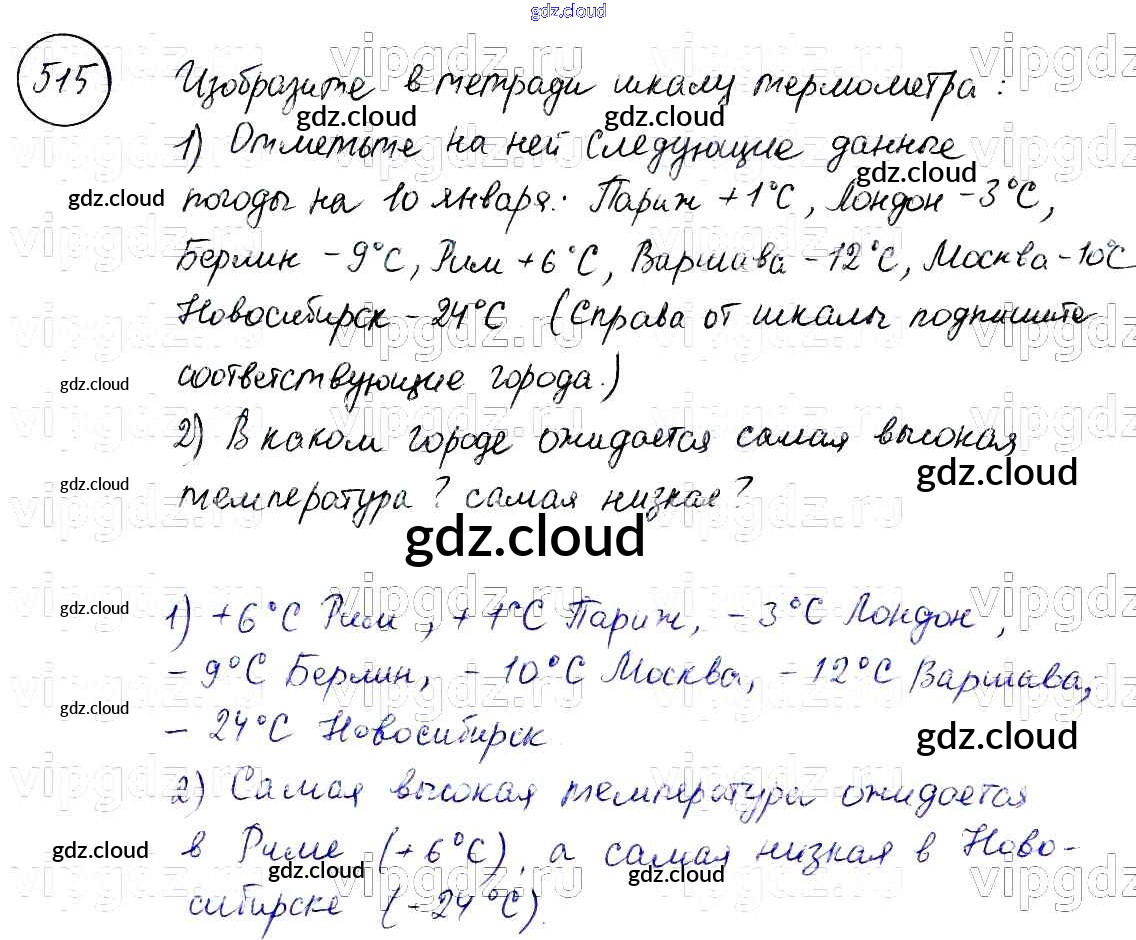 gdz.cloud
515 Изобразите в тетради шкалу термометра:
gdz.cloud gdz.cloud
1) Отметьте на ней следующие данные
gdz.cloud gdz.cloud
погоды на 10 января: Париж +1°С, Лондон -3°С,
Берлин -9°С, Рим +6°С, Варшава -12°С, Москва -10°С
Новосибирск -24°С (Справа от шкалы подпишите
gdz.cloud
соответствующие города.)
2) В каком городе ожидается самая высокая
gdz.cloud
gdz.cloud
температура? самая низкая?
gdz.cloud
gdz.cloud
1) +6°С Рим, +1°С Париж, -3°С Лондон,
-9°С Берлин, -10°С Москва, -12°С Варшава,
gdz.cloud
-24°С Новосибирск
gdz.cloud
2) Самая высокая температура ожидается
gdz.cloud
в Риме (+6°С), а самая низкая в Ново-
gdz.cloud gdz.cloud
сибирске (-24°С).
vipgdz.ru vipgdz.ru vipgdz.ru vipgdz.ru